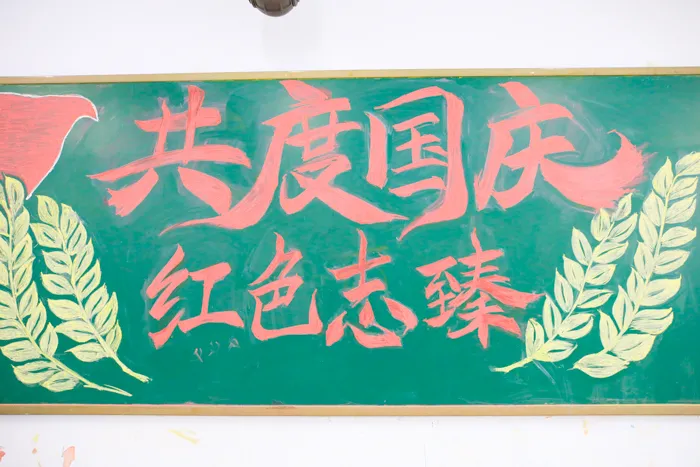 共度国庆
红色志臻